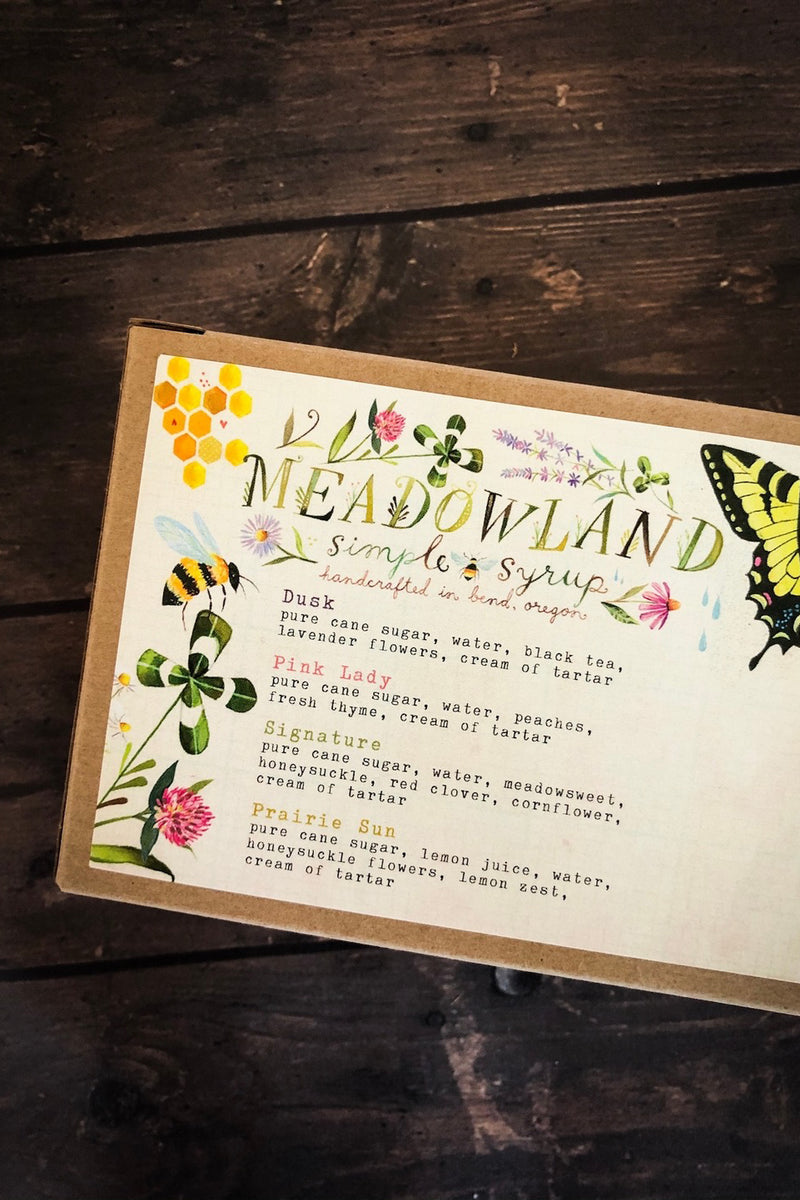 MEADOWLAND
simple syrup
handcrafted in bend, oregon
Dusk
pure cane sugar, water, black tea,
lavender flowers, cream of tartar
Pink Lady
pure cane sugar, water, peaches,
fresh thyme, cream of tartar
Signature
pure cane sugar, water, meadowsweet,
honeysuckle, red clover, cornflower,
cream of tartar
Prairie Sun
pure cane sugar, lemon juice, water,
honeysuckle flowers, lemon zest,
cream of tartar